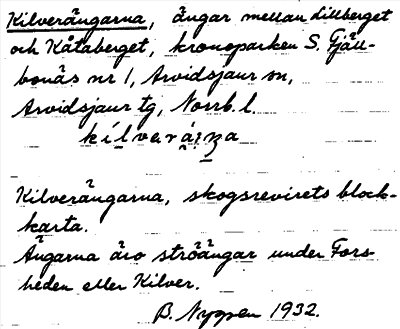 Kilverängarna, ängar mellan Lillberget
och Kåtaberget, kronoparken S. Fjäll-
bonäs nr 1, Arvidsjaur sn,
Arvidsjaur tg, Norrb. l.
Kilverängarna, skogsrevirets block-
karta.
Ängarna äro ströängar under Fors-
heden eller Kilver.
B. Nygren 1932.